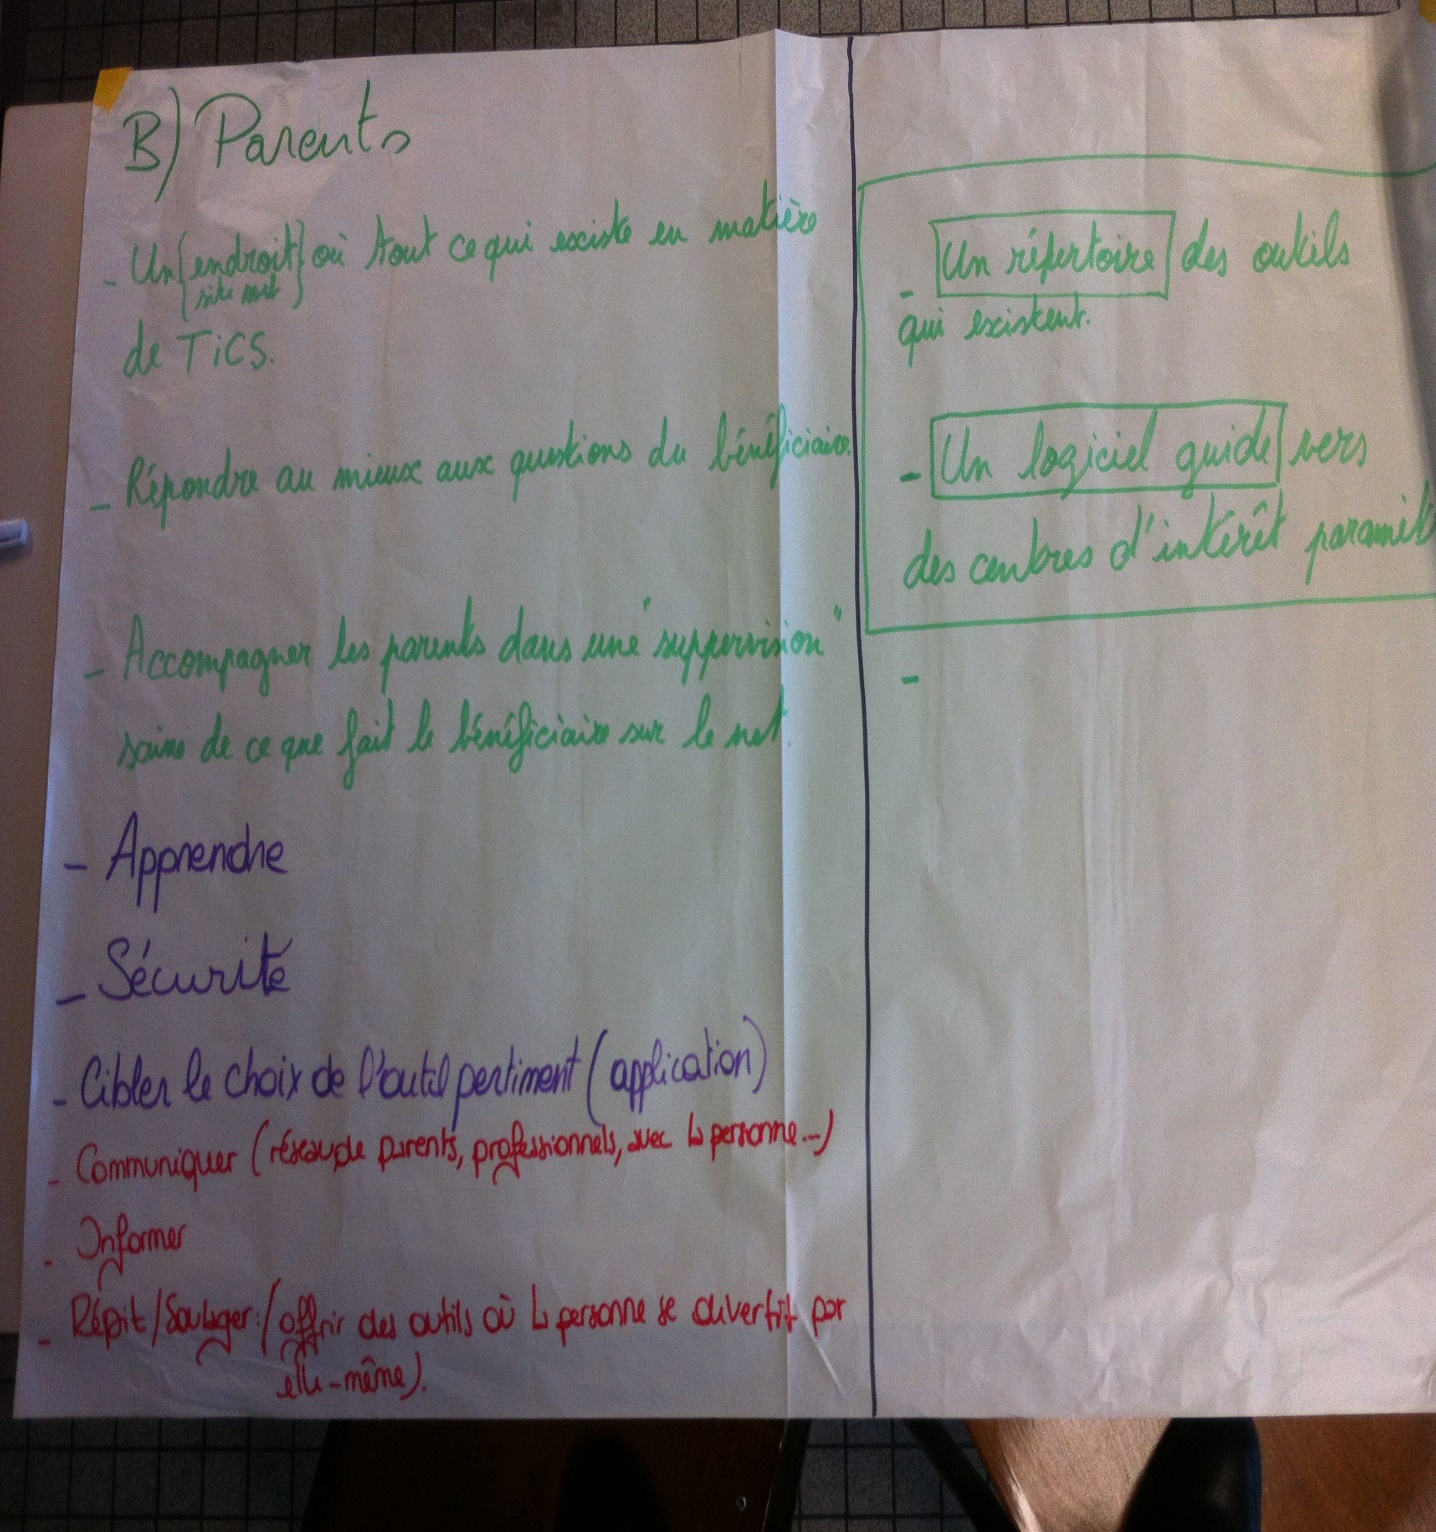 B) Parents
- Un {endroit} où tout ce qui existe en matière
{site web}
de TiCS.
- Répondre au mieux aux questions du bénéficiaire.
- Accompagner les parents dans une "suppervision"
saine de ce que fait le bénéficiaire sur le net.
- Apprendre
- Sécurité
- Cibler le choix de l'outil pertiment (application)
- Communiquer (réseau de parents, professionnels, avec la personne...)
- Informer
- Répit/Soulager: (offrir des outils où la personne se divertit par
elle-même).
- Un répertoire des outils
qui existent.
- Un logiciel guide vers
des centres d'intérêt
-